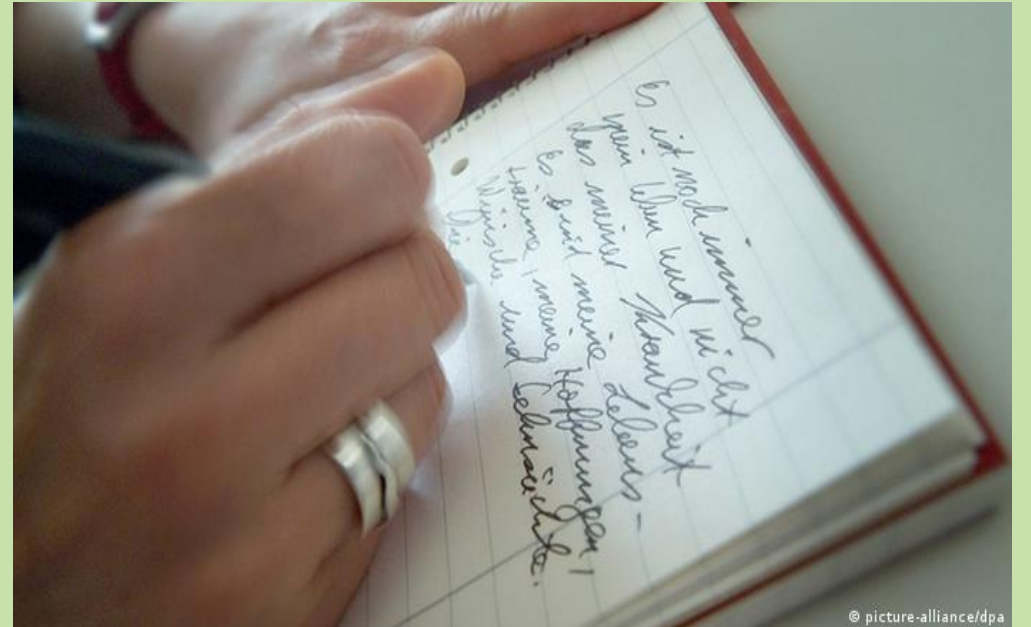 Es ist noch immer
mein Leben und nicht
das meiner Krankheit
Es sind meine Lebens-
träume, meine Hoffnungen,
Wünsche und Sehnsüchte.
Die
© picture-alliance/dpa